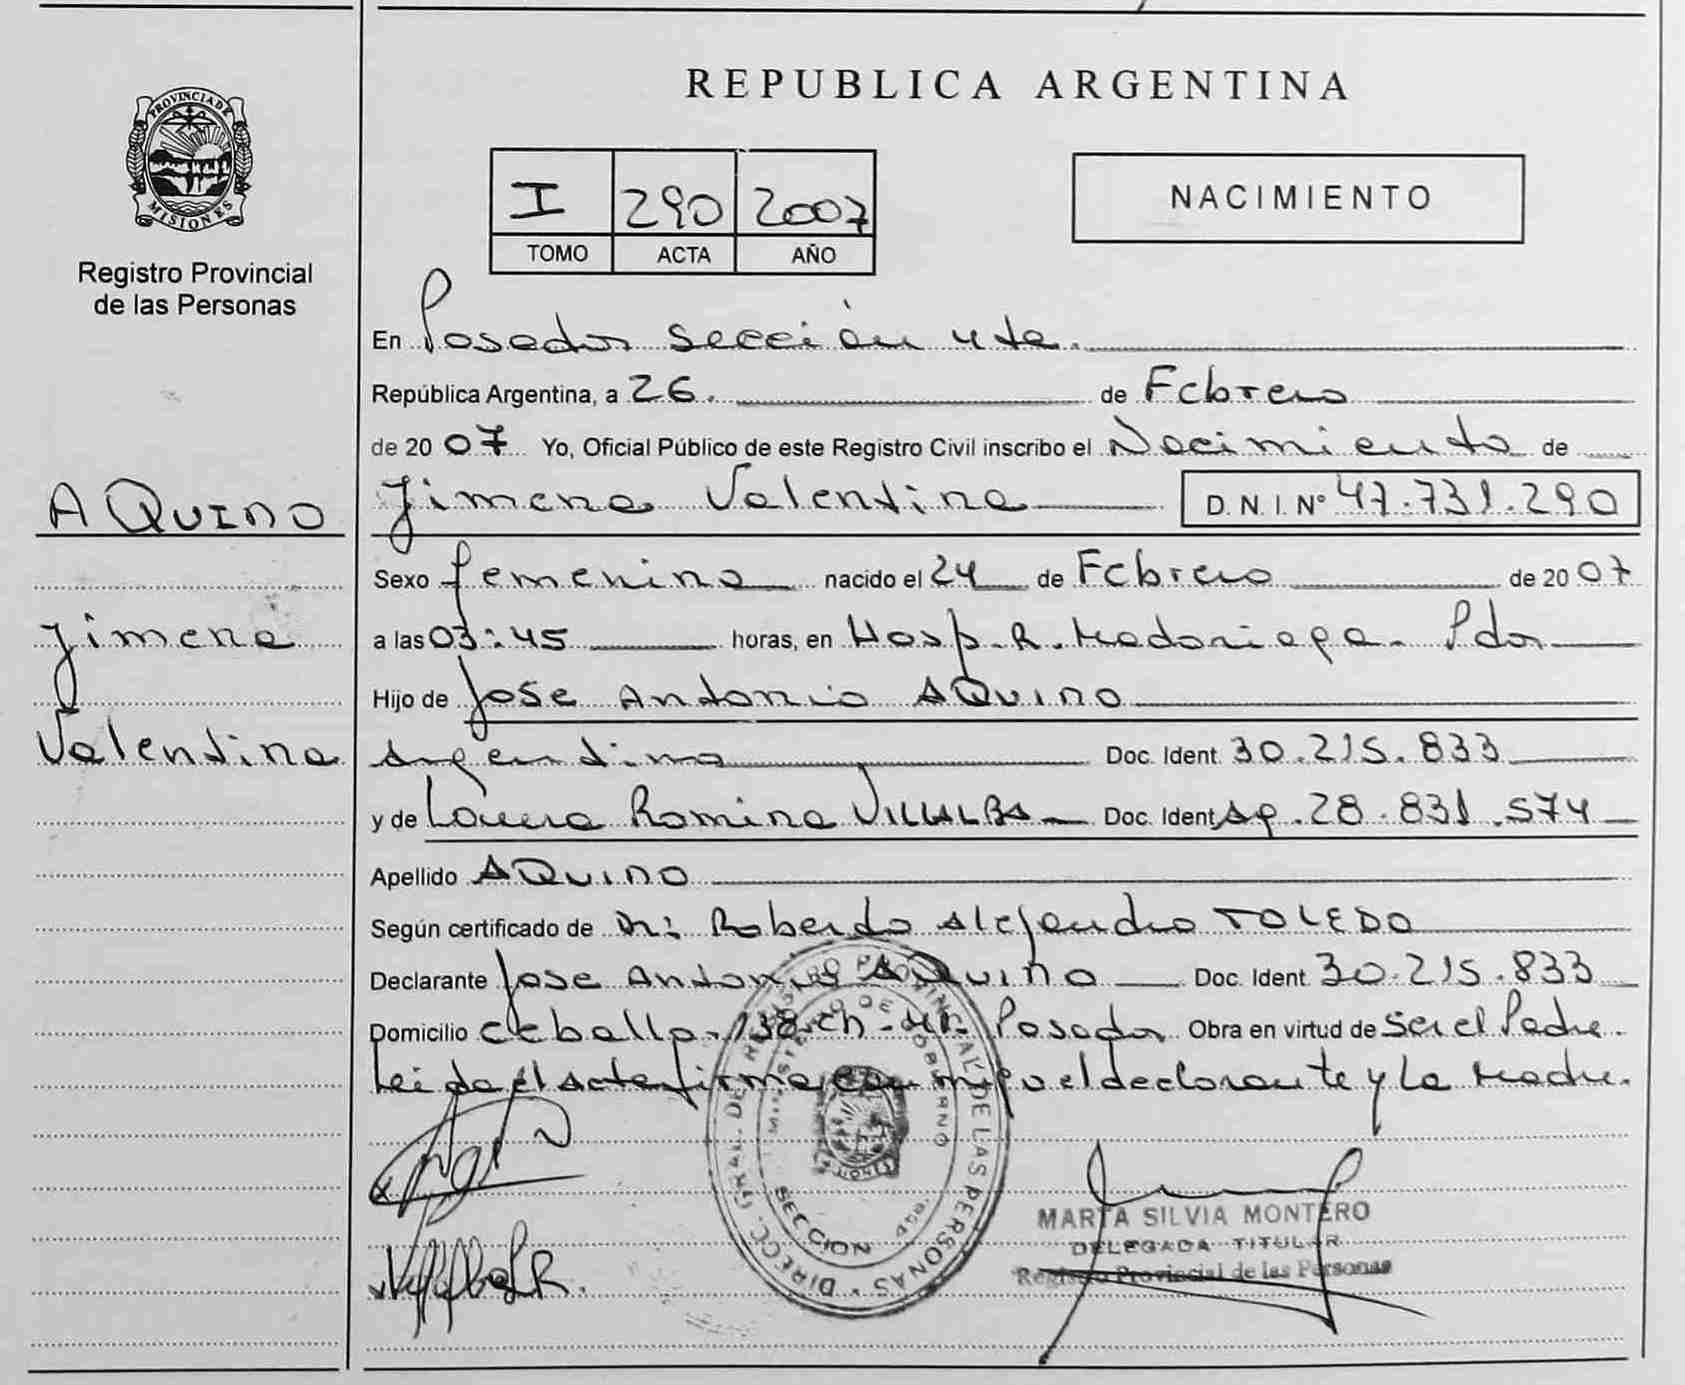 PROVINCIA DE
MISIONES
Registro Provincial
de las Personas
AQUINO
Jimena
Valentina
REPUBLICA ARGENTINA
I 290 2007
TOMO ACTA AÑO
NACIMIENTO
En Posadas sección 4ta.
República Argentina, a 26. de Febrero
de 2007 Yo, Oficial Público de este Registro Civil inscribo el Nacimiento de
Jimena Valentina D.N.I. Nº 47.731.290
Sexo femenino nacido el 24 de Febrero de 2007
a las 03:45 horas, en Hosp. R. Madariaga. Pdas
Hijo de Jose Antonio AQUINO
Argentino Doc. Ident. 30.215.833
y de Laura Romina VILLALBA Doc. Ident. Ag. 28.831.574
Apellido AQUINO
Según certificado de Dr: Roberto Alejandro TOLEDO
Declarante Jose Antonio AQUINO Doc. Ident. 30.215.833
Domicilio Ceballo 138 ch. Posadas Obra en virtud de ser el Padre.
Leida el acta firma con migo el declarante y la Madre.
DIRECC. GRAL. DE REGISTRO PROVINCIAL DE LAS PERSONAS
MINISTERIO DE GOBIERNO
SECCION
MARTA SILVIA MONTERO
DELEGADA TITULAR
Registro Provincial de las Personas